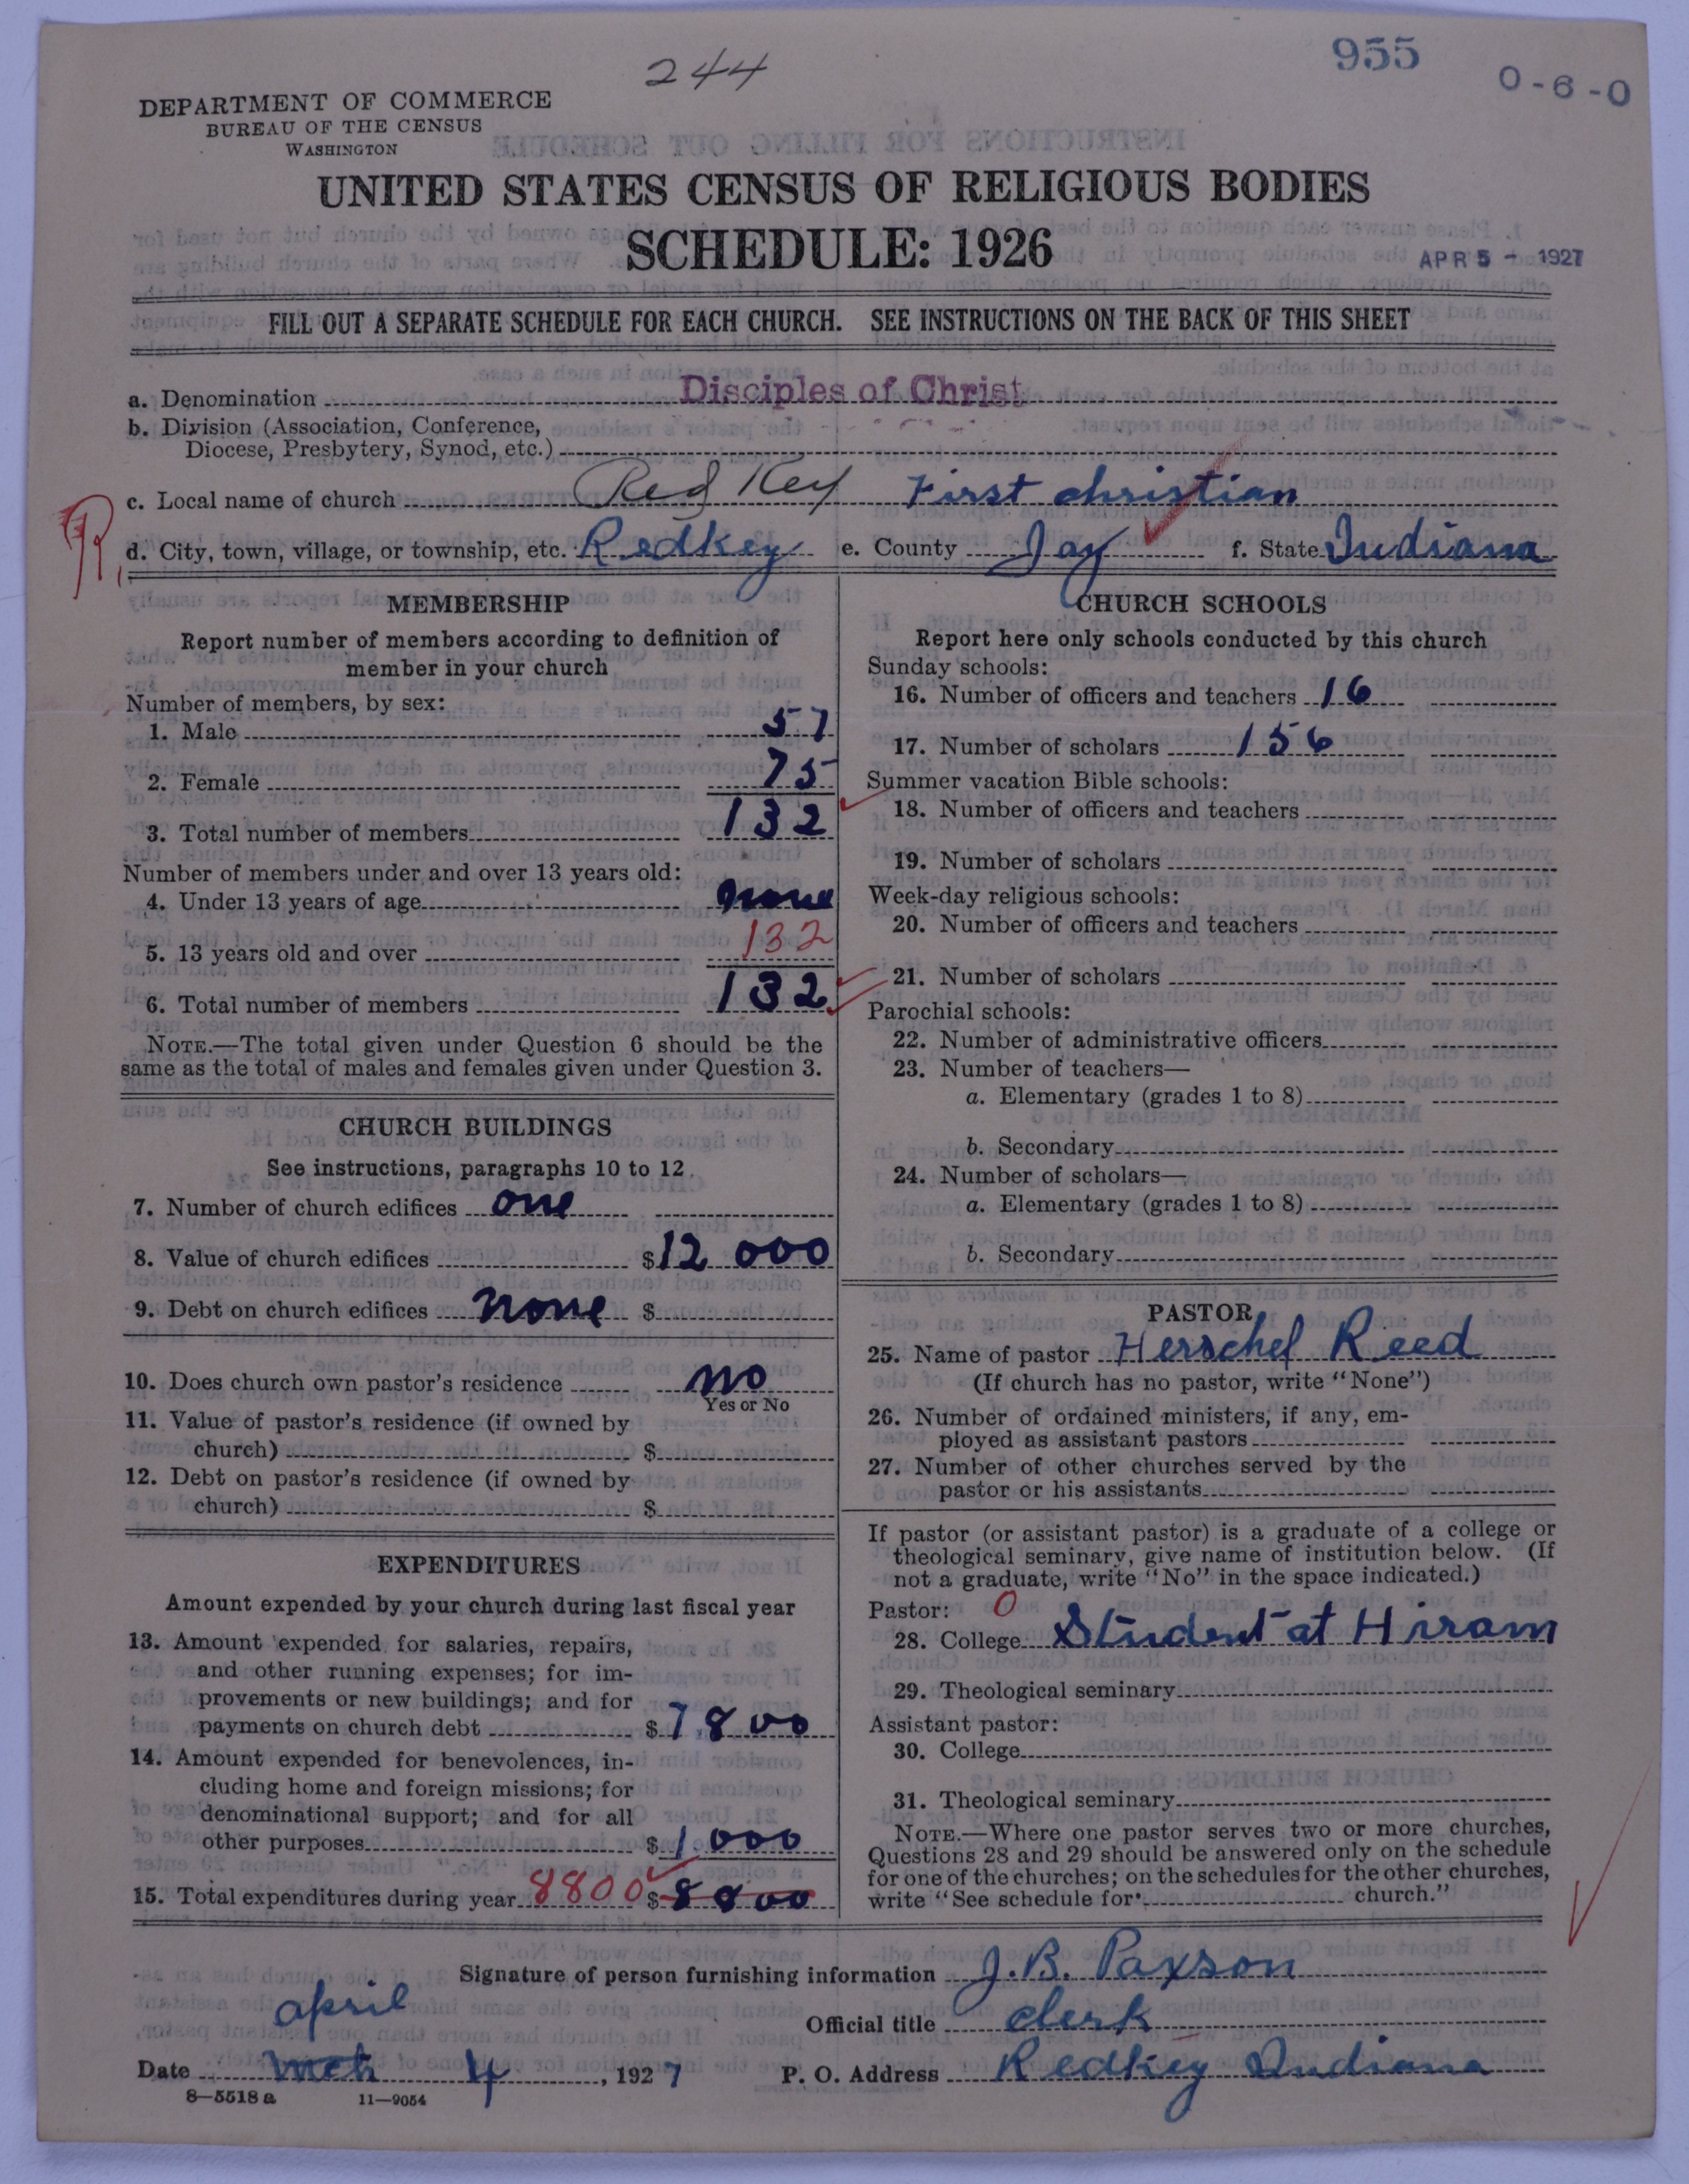 244
955
0-6-0
DEPARTMENT OF COMMERCE
BUREAU OF THE CENSUS
WASHINGTON
UNITED STATES CENSUS OF RELIGIOUS BODIES
SCHEDULE: 1926
APR 5 - 1927
FILL OUT A SEPARATE SCHEDULE FOR EACH CHURCH. SEE INSTRUCTIONS ON THE BACK OF THIS SHEET
a. Denomination Disciples of Christ
b. Division (Association, Conference,
Diocese, Presbytery, Synod, etc.)
c. Local name of church Red Key First christian
R
d. City, town, village, or township, etc. Redkey e. County Jay f. State Indiana
MEMBERSHIP
Report number of members according to definition of
member in your church
Number of members, by sex:
1. Male 57
2. Female 75
3. Total number of members 132
Number of members under and over 13 years old:
4. Under 13 years of age none
5. 13 years old and over 132
6. Total number of members 132
NOTE.—The total given under Question 6 should be the
same as the total of males and females given under Question 3.
CHURCH BUILDINGS
See instructions, paragraphs 10 to 12
7. Number of church edifices one
8. Value of church edifices $12 000
9. Debt on church edifices none $
10. Does church own pastor's residence no
Yes or No
11. Value of pastor's residence (if owned by
church) $
12. Debt on pastor's residence (if owned by
church) $
EXPENDITURES
Amount expended by your church during last fiscal year
13. Amount expended for salaries, repairs,
and other running expenses; for im-
provements or new buildings; and for
payments on church debt $7800
14. Amount expended for benevolences, in-
cluding home and foreign missions; for
denominational support; and for all
other purposes $1000
15. Total expenditures during year 8800 $8800
CHURCH SCHOOLS
Report here only schools conducted by this church
Sunday schools:
16. Number of officers and teachers 16
17. Number of scholars 156
Summer vacation Bible schools:
18. Number of officers and teachers
19. Number of scholars
Week-day religious schools:
20. Number of officers and teachers
21. Number of scholars
Parochial schools:
22. Number of administrative officers
23. Number of teachers—
a. Elementary (grades 1 to 8)
b. Secondary
24. Number of scholars—
a. Elementary (grades 1 to 8)
b. Secondary
PASTOR
25. Name of pastor Herschel Reed
(If church has no pastor, write "None")
26. Number of ordained ministers, if any, em-
ployed as assistant pastors
27. Number of other churches served by the
pastor or his assistants
If pastor (or assistant pastor) is a graduate of a college or
theological seminary, give name of institution below. (If
not a graduate, write "No" in the space indicated.)
Pastor: 0
28. College Student at Hiram
29. Theological seminary
Assistant pastor:
30. College
31. Theological seminary
NOTE.—Where one pastor serves two or more churches,
Questions 28 and 29 should be answered only on the schedule
for one of the churches; on the schedules for the other churches,
write "See schedule for church."
Signature of person furnishing information J. B. Paxson
april
Official title clerk
Date Mch 4, 1927 P. O. Address Redkey Indiana
8—5518 a 11—9054